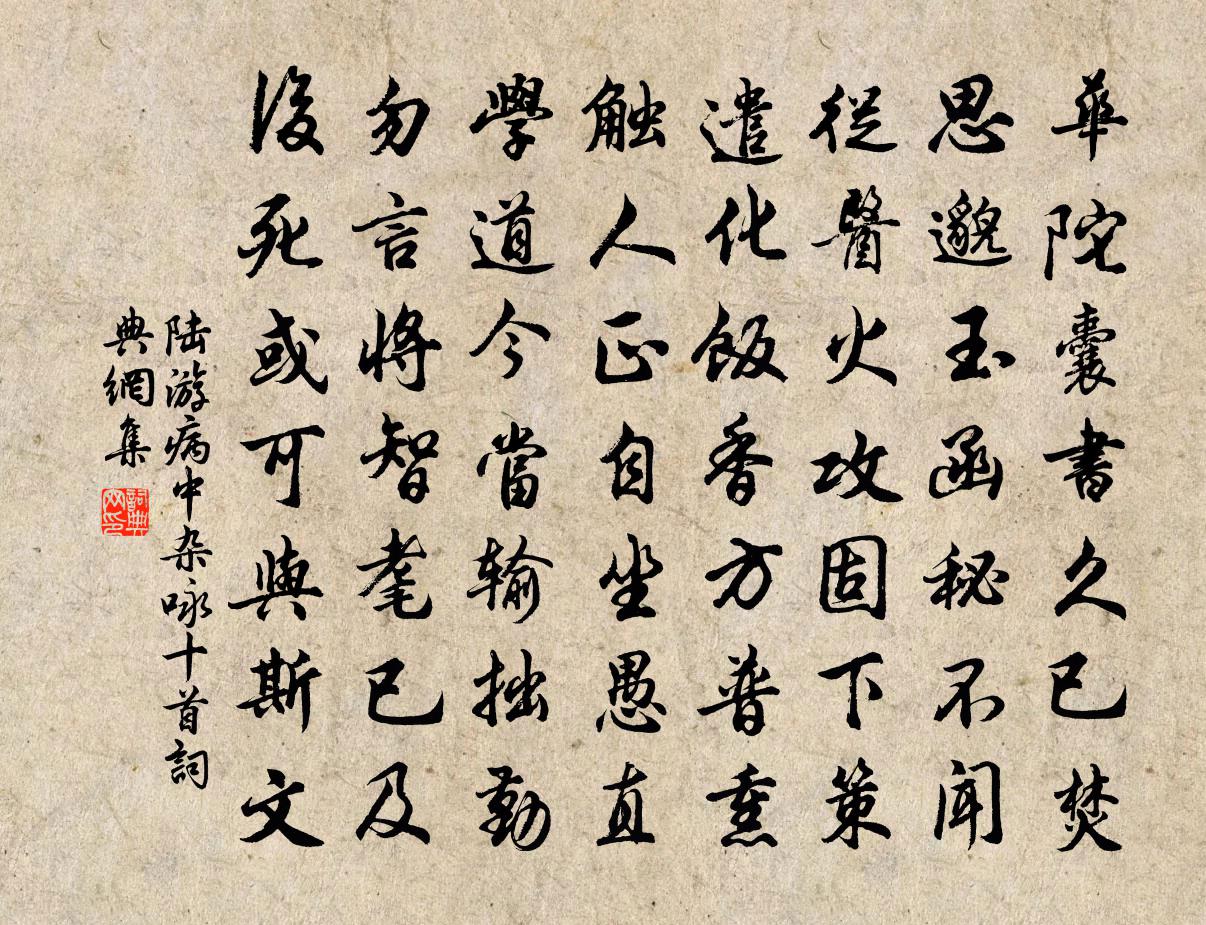 華陀囊書久已焚
思邈玉函秘不聞
從醫火攻固下策
遣化飯香方普熏
触人正自坐愚直
學道今當输拙勤
勿言將智耄已及
後死或可與斯文
陆游病中杂咏十首詞
典網集
詞典
网印